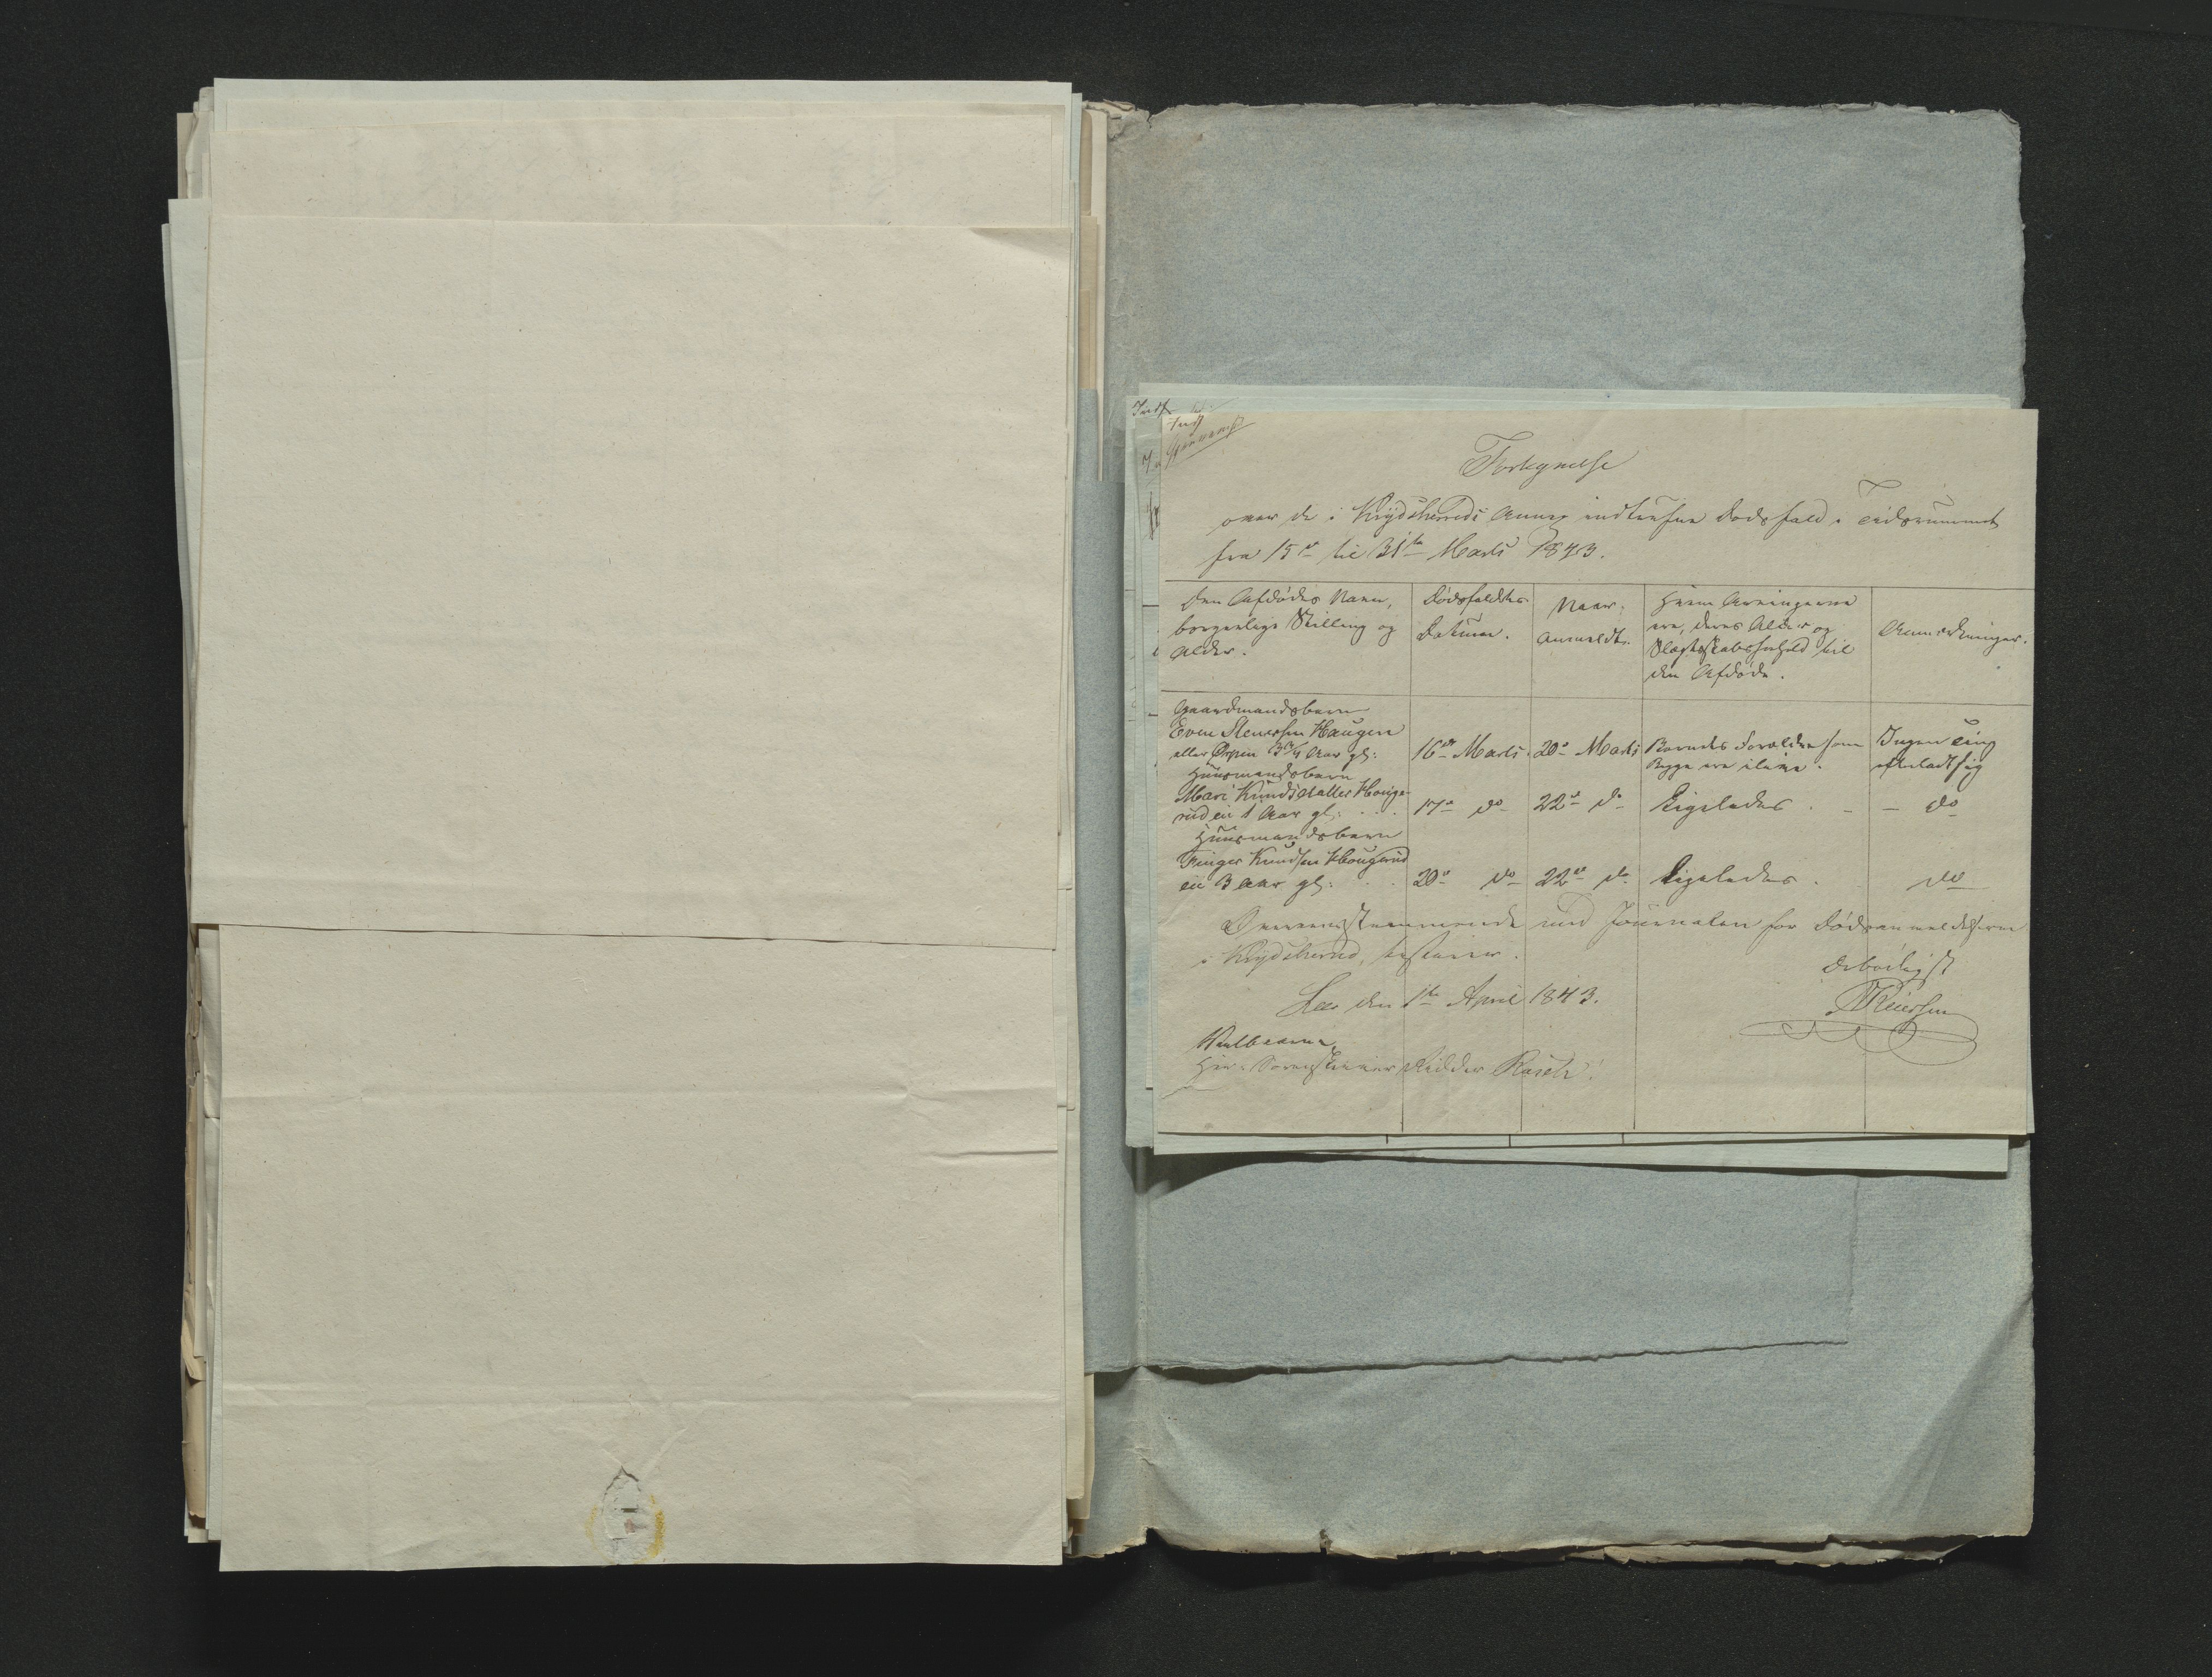 Indf
Fortegnelse
over de i Krydsherreds Annex indtrufne Dødsfald i Tidsrummet
fra 15de til 31te Marts 1843.
Den Afdødes Navn,
borgerlige Stilling og
Alder.
Dødsfaldets
Datum.
Naar
anmeldt.
Hvem Arvingerne
ere, deres Alder og
Slægtskabsforhold til
den Afdøde.
Anmærkninger.
Gaardmandsbarn
Even Stenersen Haugen
eller Ørpen 3 3/4 Aar gl:
16de Marts
20de Marts
Barnets Forældre som
begge ere ilive.
Ingen Ting
efterladt sig
Huusmandsbarn
Mari Knudsdatter Houge-
rudei 1 Aar gl:
17de do
22de do
Ligeledes
do
Huusmandsbarn
Knudsen Hougerud
ei 3 Aar gl:
20de do
22de do
Ligeledes
do
Overensstemmende med Journalen for Dødsanmeldelserne
i Krydsherred, testerer.
Lee den 1te April 1843.
ærbødigst
Reiersen
Velbaarne
Herr Sorenskriver Ridder Rasch!